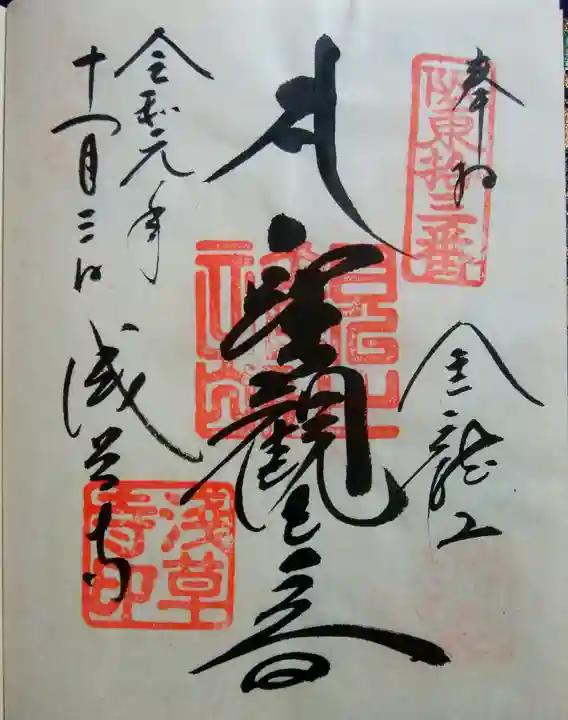 奉拝
坂東拾三番
金龍山
聖観世音
令和元年
十一月三日
浅草寺
浅草寺印